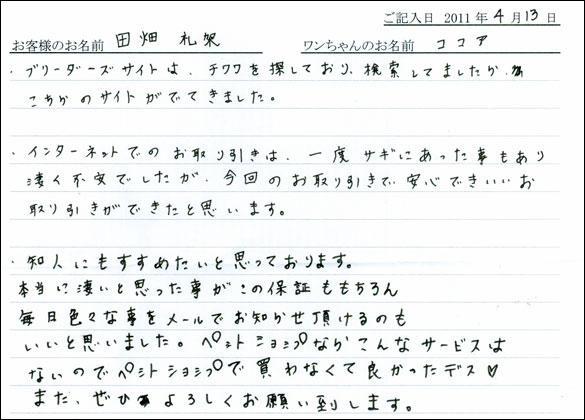 ご記入日 2011年4月13日
お客様のお名前 田畑 礼架 ワンちゃんのお名前 ココア
・ブリーダーズサイトは、チワワを探しており、検索してましたが、
こちらのサイトがでてきました。
・インターネットでのお取り引きは、一度サギにあった事もあり
凄く不安でしたが、今回のお取り引きで安心できいいお
取り引きができたと思います。
・知人にもすすめたいと思っております。
本当に凄いと思った事がこの保証ももちろん
毎日色々な事をメールでお知かせ頂けるのも
いいと思いました。ペットショップなかこんなサービスは
ないのでペットショップで買わなくて良かったデス♡
また、ぜひよろしくお願い到します。